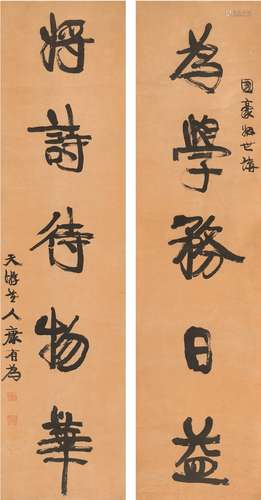 國豪如世講
為學務日益
將詩待物華
天游堂人康有為